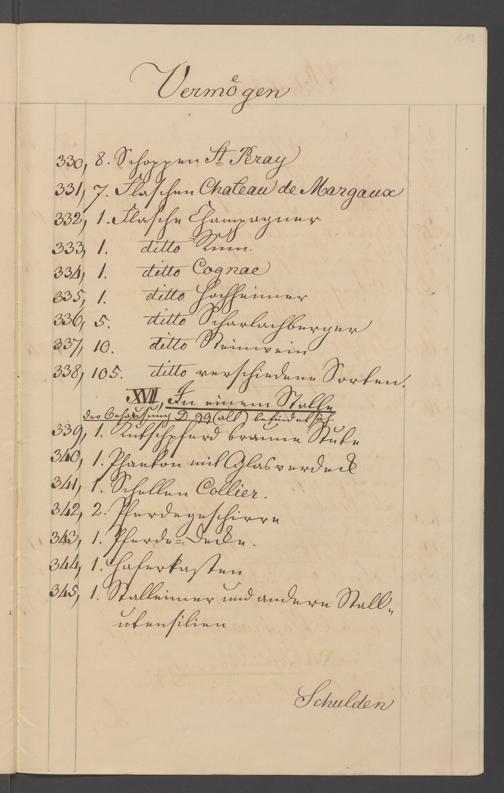 113
Vermögen
330, 8. Schoppen St Peray
331, 7. Flaschen Chateau de Margaux
332, 1. Flasche Champagner
333, 1. ditto Rum.
334, 1. ditto Cognac
335, 1. ditto Hochheimer
336, 5. ditto Scharlachberger
337, 10. ditto Steinwein
338, 105. ditto verschiedene Sorten.
XVII, In einem Stalle
der Behausung D. 99 (alt) befindet sich
339, 1. Kutschpferd braune Stute
340, 1. Phaeton mit Glasverdeck
341, 1. Schellen Collier.
342, 2. Pferdegeschirre
343, 1. Pferde=Decke.
344, 1. Haferkasten
345, 1. Stalleimer und andere Stall=
utensilien
Schulden